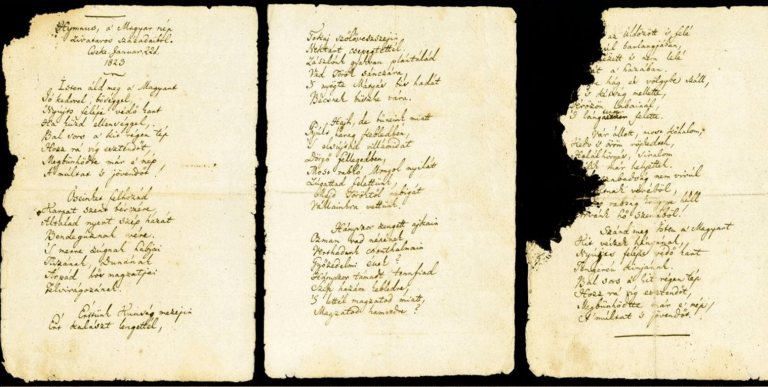 Hymnus, a' Magyar nép
zivataros századaiból.
Cseke, Januar. 22d.
1823
Isten áld meg a' Magyart
Jó kedvvel, bőséggel,
Nyújts feléje védő kart
Ha küzd ellenséggel;
Bal sors a' kit régen tép
Hozz rá víg esztendőt,
Megbünhödte már e' nép
A' multat 's jövendőt!
Őseinket felhozád
Kárpát szent bérczére,
Általad nyert szép hazát
Bendegúznak vére.
'S merre zúgnak habjai
Tiszának, Dunának,
Árpád hős magzatjai
Felvirágozának.
Értünk Kunság mezein
Ért kalászt lengettél,
Tokaj szőlővesszein
Nektárt csepegtettél.
Zászlónk gyakran plántálád
Vad Török sáncára,
'S nyögte Mátyás bús hadát
Bécsnek büszke vára.
Hajh, de bűneink miatt
Gyúlt harag kebledben,
'S elsújtád villámidat
Dörgő fellegedben,
Most rabló Mongol nyilát
Zúgattad felettünk,
Majd Töröktől rabigát
Vállainkra vettünk.
Hányszor zengett ajkain
Ozman vad népének
Vert hadunk csonthalmain
Győzedelmi ének?
Hányszor támadt tenfiad
Szép hazám kebledre,
'S lettél magzatod miatt,
Magzatod hamvedre?
az üldözött 's felé
barlangjában,
nézett 's nem lelé
a' hazában.
hág és völgybe száll,
's kétség mellette,
Vérözön lábainál,
'S lángtenger felette.
Vár állott, most kőhalom;
Kedv 's öröm röpkedtek,
Halálhörgés, siralom
már helyettek.
szabadság nem virúl
véréből,
rabság könnye hull
hő szeméből.
Szánd meg Isten a' Magyart
Kit vészek hányának,
Nyújts feléje védő kart
Tengerén kínjának.
Bal sors a' kit régen tép
Hozz rá víg esztendőt,
Megbünhödte már e' nép
A' multat 's jövendőt!